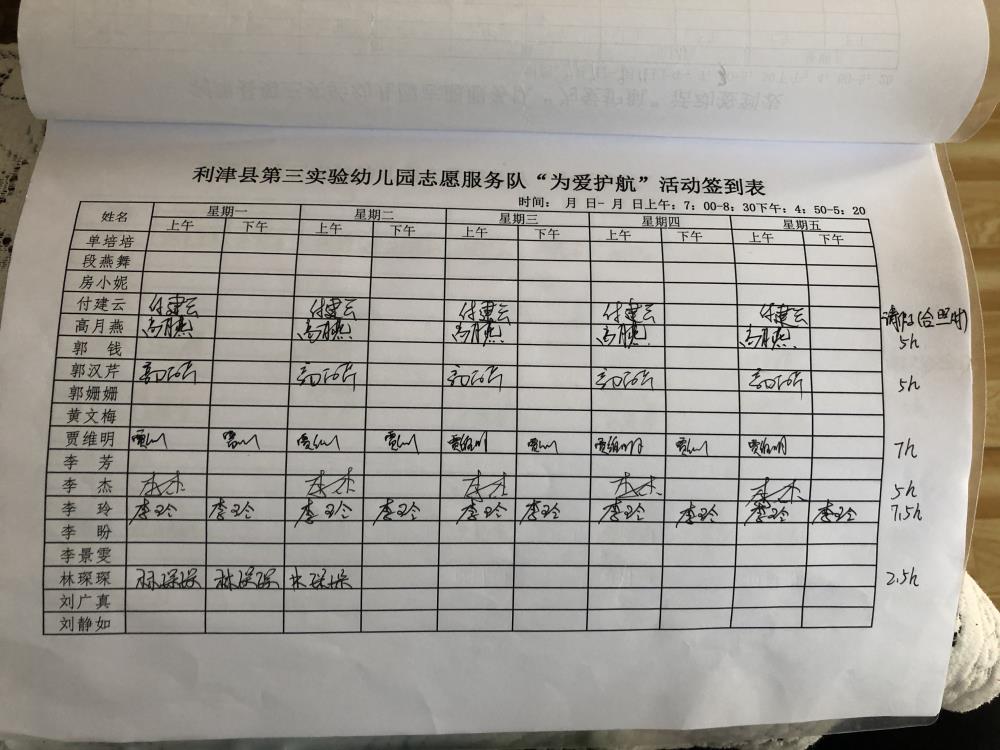 利津县第三实验幼儿园志愿服务队“为爱护航”活动签到表
时间： 月 日- 月 日上午：7：00-8：30下午：4：50-5：20
姓名 星期一 星期二 星期三 星期四 星期五
上午 下午 上午 下午 上午 下午 上午 下午 上午 下午
单培培
段燕舞
房小妮
付建云 付建云 付建云 付建云 付建云 付建云
高月燕 高月燕 高月燕 高月燕 高月燕 高月燕 5h
郭 钱
郭汉芹 郭汉芹 郭汉芹 郭汉芹 郭汉芹 郭汉芹 5h
郭姗姗
黄文梅
贾维明 贾维明 贾维明 贾维明 贾维明 贾维明 贾维明 贾维明 贾维明 贾维明 7h
李 芳
李 杰 李杰 李杰 李杰 李杰 李杰 5h
李 玲 李玲 李玲 李玲 李玲 李玲 李玲 李玲 李玲 李玲 李玲 7.5h
李 盼
李景雯
林琛琛 林琛琛 林琛琛 林琛琛 2.5h
刘广真
刘静如